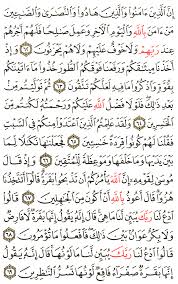 إِنَّ ٱلَّذِينَ ءَامَنُوا۟ وَٱلَّذِينَ هَادُوا۟ وَٱلنَّصَٰرَىٰ وَٱلصَّٰبِـِٔينَ
مَنْ ءَامَنَ بِٱللَّهِ وَٱلْيَوْمِ ٱلْـَٔاخِرِ وَعَمِلَ صَٰلِحًا فَلَهُمْ أَجْرُهُمْ
عِندَ رَبِّهِمْ وَلَا خَوْفٌ عَلَيْهِمْ وَلَا هُمْ يَحْزَنُونَ ٦٢ وَإِذْ
أَخَذْنَا مِيثَٰقَكُمْ وَرَفَعْنَا فَوْقَكُمُ ٱلطُّورَ خُذُوا۟ مَآ ءَاتَيْنَٰكُم
بِقُوَّةٍ وَٱذْكُرُوا۟ مَا فِيهِ لَعَلَّكُمْ تَتَّقُونَ ٦٣ ثُمَّ تَوَلَّيْتُم مِّنۢ
بَعْدِ ذَٰلِكَ فَلَوْلَا فَضْلُ ٱللَّهِ عَلَيْكُمْ وَرَحْمَتُهُۥ لَكُنتُم مِّنَ
ٱلْخَٰسِرِينَ ٦٤ وَلَقَدْ عَلِمْتُمُ ٱلَّذِينَ ٱعْتَدَوْا۟ مِنكُمْ فِى ٱلسَّبْتِ
فَقُلْنَا لَهُمْ كُونُوا۟ قِرَدَةً خَٰسِـِٔينَ ٦٥ فَجَعَلْنَٰهَا نَكَٰلًا لِّمَا
بَيْنَ يَدَيْهَا وَمَا خَلْفَهَا وَمَوْعِظَةً لِّلْمُتَّقِينَ ٦٦ وَإِذْ قَالَ
مُوسَىٰ لِقَوْمِهِۦٓ إِنَّ ٱللَّهَ يَأْمُرُكُمْ أَن تَذْبَحُوا۟ بَقَرَةً قَالُوٓا۟ أَتَتَّخِذُنَا
هُزُوًا قَالَ أَعُوذُ بِٱللَّهِ أَنْ أَكُونَ مِنَ ٱلْجَٰهِلِينَ ٦٧ قَالُوا۟
ٱدْعُ لَنَا رَبَّكَ يُبَيِّن لَّنَا مَا هِىَ قَالَ إِنَّهُۥ يَقُولُ إِنَّهَا بَقَرَةٌ لَّا فَارِضٌ
وَلَا بِكْرٌ عَوَانٌۢ بَيْنَ ذَٰلِكَ فَٱفْعَلُوا۟ مَا تُؤْمَرُونَ ٦٨
قَالُوا۟ ٱدْعُ لَنَا رَبَّكَ يُبَيِّن لَّنَا مَا لَوْنُهَا قَالَ إِنَّهُۥ يَقُولُ
إِنَّهَا بَقَرَةٌ صَفْرَآءُ فَاقِعٌ لَّوْنُهَا تَسُرُّ ٱلنَّٰظِرِينَ ٦٩